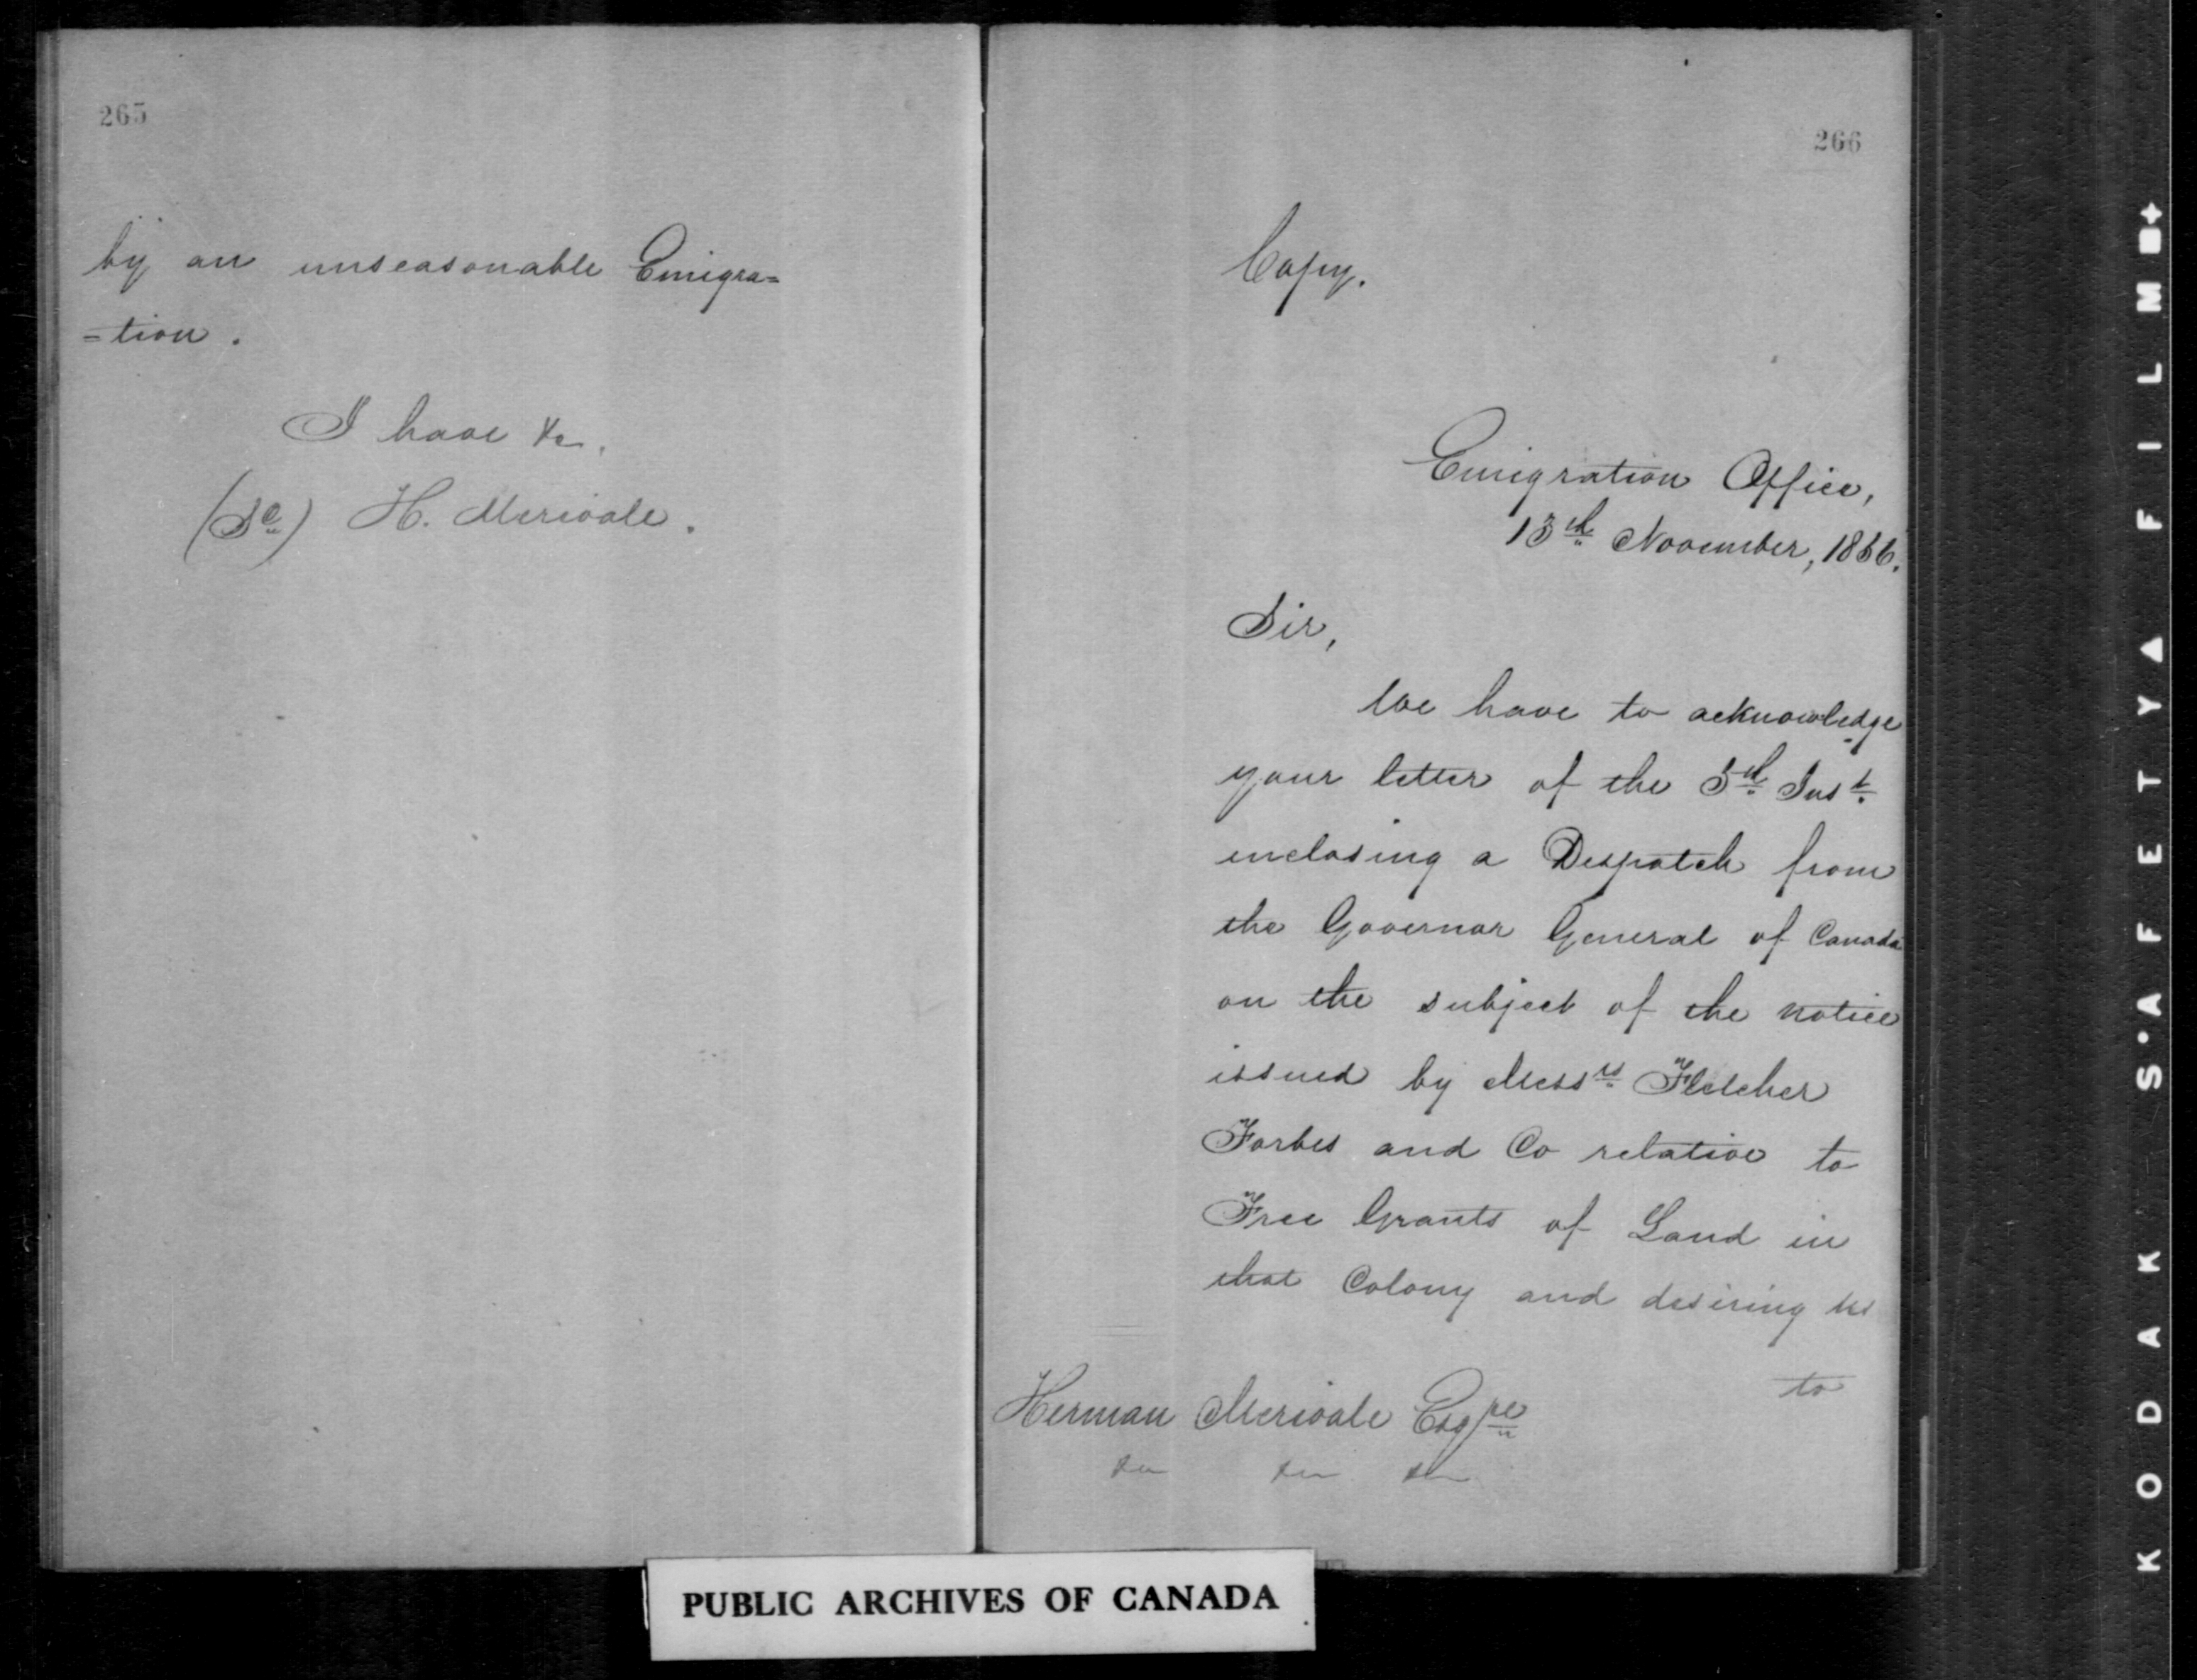 265
by an unseasonable Emigra=
=tion.
I have &c.
(Sd) H. Merivale.
266
Copy.
Emigration Office,
13th November, 1856.
Sir,
We have to acknowledge
your letter of the 5th Inst
enclosing a Despatch from
the Governor General of Canada
on the subject of the notice
issued by Messrs Fletcher
Forbes and Co relative to
Free Grants of Land in
that Colony and desiring us
to
Herman Merivale Esqre
&c &c &c
PUBLIC ARCHIVES OF CANADA
KODAK S'AFETY FILM